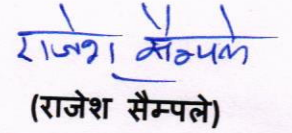 राजेश सैम्पले
(राजेश सैम्पले)